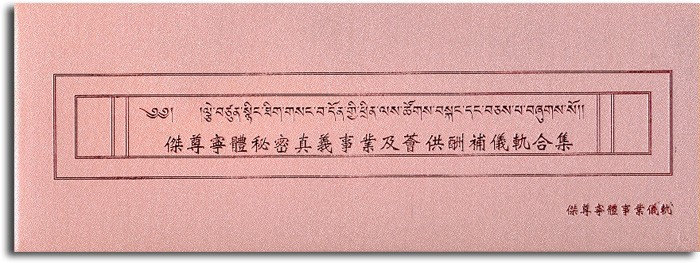 ༄༅། །ལྕེ་བཙུན་སྙིང་ཐིག་གསང་བ་དོན་གྱི་ཕྲིན་ལས་ཚོགས་བསྐང་དང་བཅས་པ་བཞུགས་སོ།།
傑尊寧體秘密真義事業及薈供酬補儀軌合集
傑尊寧體事業儀軌